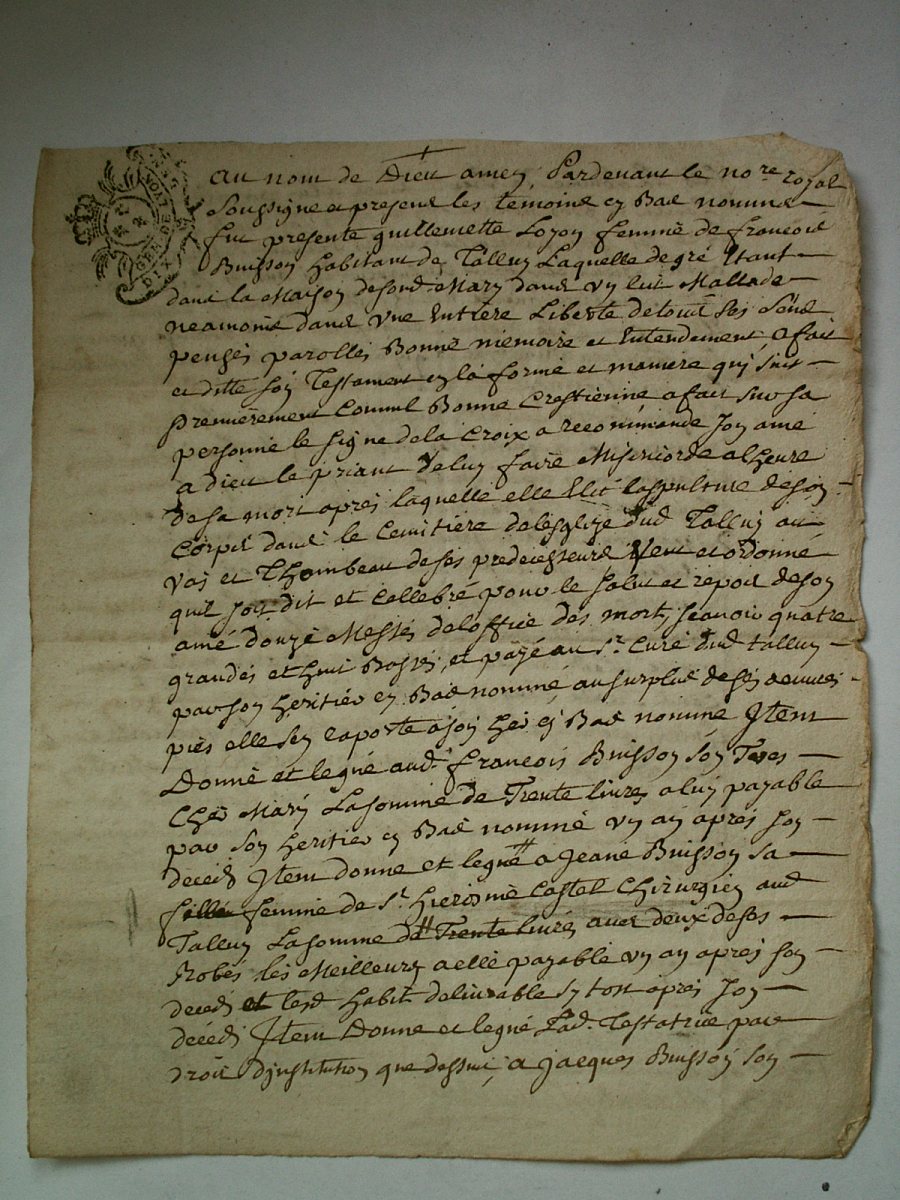 Au nom de Dieu amen, Pardevant le no.re royal
soussigne et presens les temoins en Bas nommes
fut presente guillemette Loyon femme de francois
Buisson habitant de Talluy Laquelle de gré Etant
dans la Maison de sond. Mary dans vn lict Mallade
neamoins dans vne Entiere Liberte de tous ses sens
pensés parolles Bonne memoire et Entendement, a fait
et ditte son Testament en la forme et maniere qui suit
premierement Comme Bonne Crestienne a fait sur sa
personne le signe de la Croix a recommande son ame
a Dieu le priant de luy faire Misericorde a lheure
de sa mort apres laquelle elle Elit la sepulture de son
Corps dans le Cemitiere de lesglize dud. Talluy au
vas et Thombeau de ses predecesseurs Veut et ordonne
quil soit dit et Cellebré pour le salut et repos de son
amé douze Messes de loffice des morts, scauoir quatre
grandes et huit Basses, et payé au Sr. Curé dud talluy
par son heritier en Bas nommé, au surplus de ses oeuures
pies elle sen raporte a son her en Bas nomme Jtem
Donne et legué aud. francois Buisson son Tres
Cher Mary La somme de Trente liures a luy payable
par son heritier en Bas nommé vn an apres son
deceds Jtem donne et legue a Jeane Buisson sa
fille femme de Sr. hierosme Castel Chirurgien aud
Talluy La somme de Trente liures auec deux de ses
Robes les Meilleures a elle payable vn an apres son
deceds et lesd habits deliurable sy tost apres son
décéds Jtem Donne et legué Lad. Testatrice par
droit Djnstitution que dessus, a Jacques Buisson son